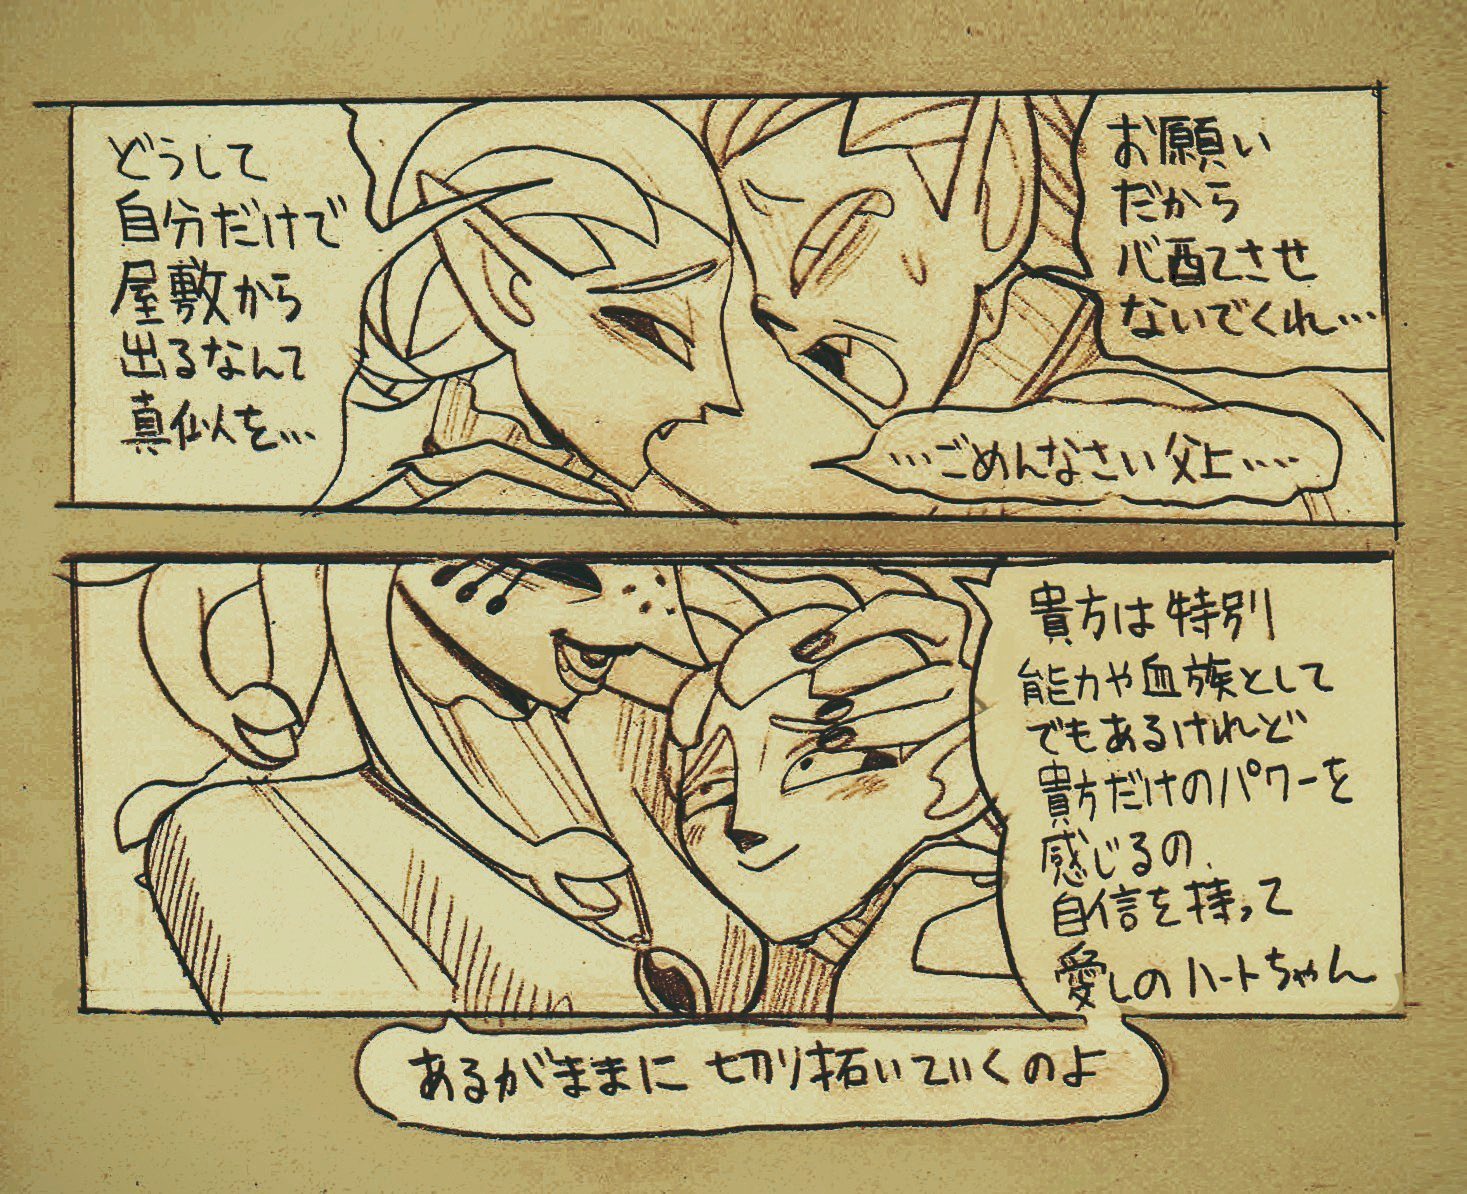 どうして
自分だけで
屋敷から
出るなんて
真似を…
お願い
だから
心配させ
ないでくれ…
…ごめんなさい父上…
貴方は特別
能力や血族として
でもあるけれど
貴方だけのパワーを
感じるの
自信を持って
愛しのハートちゃん
あるがままに切り拓いていくのよ